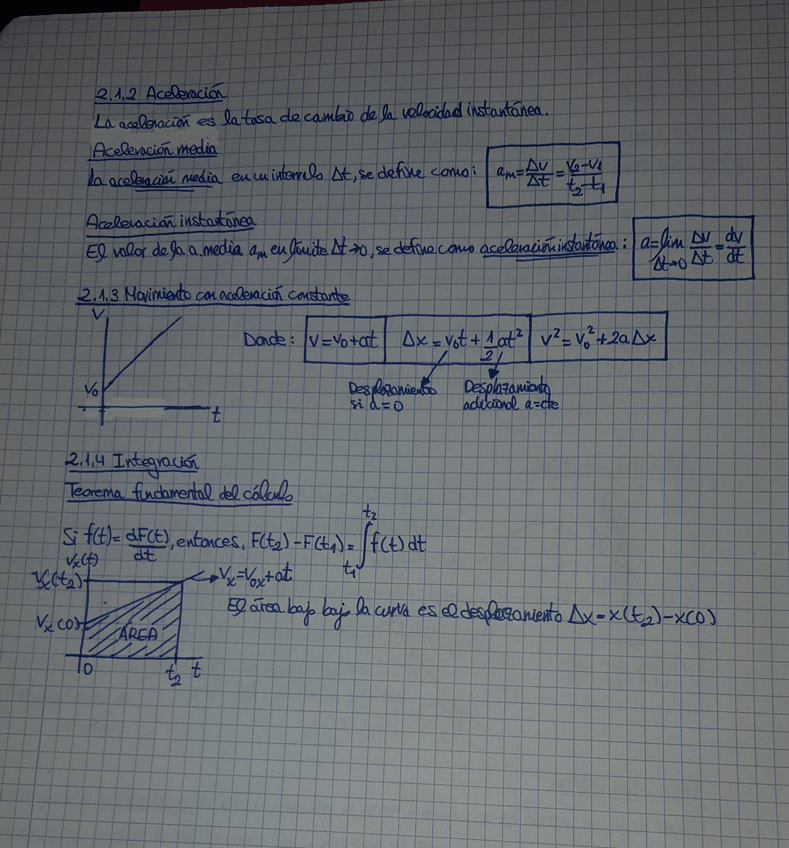 2.1.2 Aceleración
La aceleración es la tasa de cambio de la velocidad instantánea.
Aceleración media
La aceleración media en un intervalo Δt, se define como: a_m = Δv/Δt = (v₂-v₁)/(t₂-t₁)
Aceleración instantánea
El valor de la a. media a_m en límite Δt→0, se define como aceleración instantánea: a = lim Δt→0 Δv/Δt = dv/dt
2.1.3 Movimiento con aceleración constante
V
V₀
t
Donde: v = v₀ + at Δx = v₀t + 1/2 at² v² = v₀² + 2aΔx
Desplazamiento
si a=0
Desplazamiento
adicional a=cte
2.1.4 Integración
Teorema fundamental del cálculo
Si f(t) = dF(t)/dt, entonces, F(t₂) - F(t₁) = ∫ t₁ t₂ f(t) dt
Vx(t)
Vx(t₂)
Vx = V₀x + at
Vx(0)
ÁREA
0
t₂
t
El área bajo bajo la curva es el desplazamiento Δx = x(t₂) - x(0)